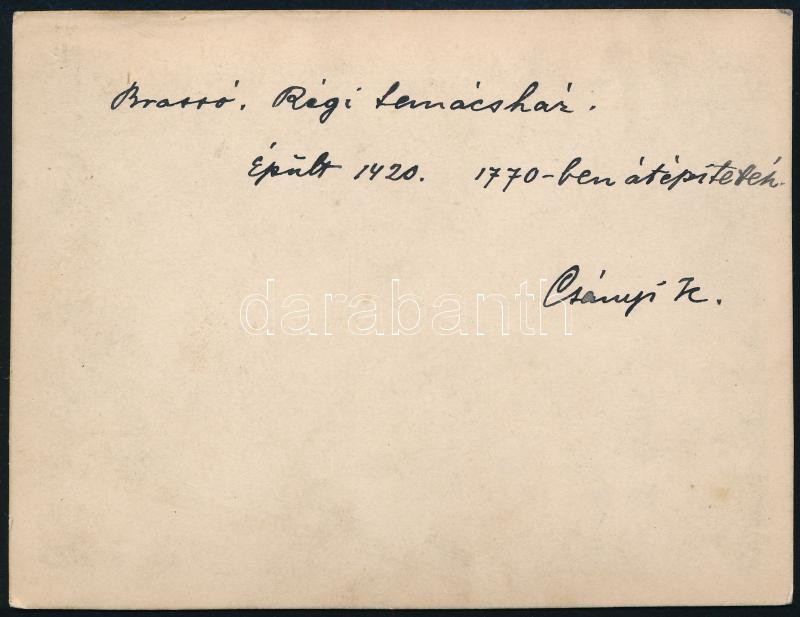 Brassó. Régi tanácsház.
Épült 1420. 1770-ben átépítették.
Csányi K.
darabanth